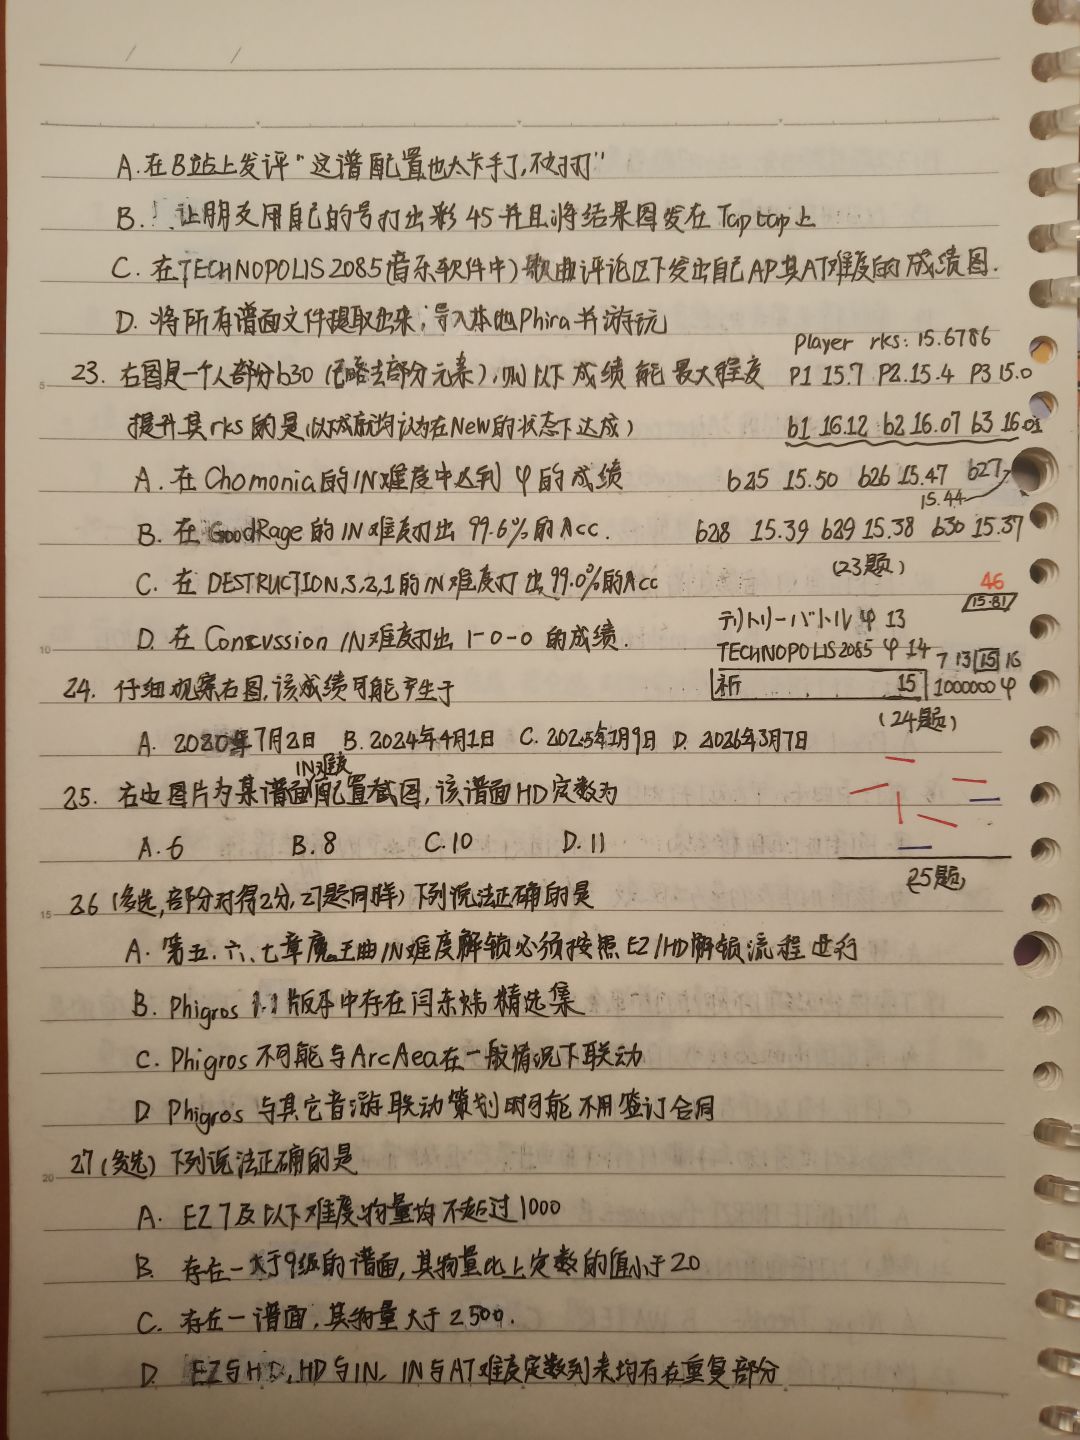 A.在B站上发评"这谱配置也太卡手了,不好打"
B. 让朋友用自己的号打出彩45并且将结果图发在Taptap上
C.在TECHNOPOLIS2085(音乐软件中)歌曲评论区下发出自己AP其AT难度的成绩图.
D.将所有谱面文件提取出来,导入本地Phira并游玩
Player rks:15.6786
23.右图是一个人部分b30(已略去部分元素),则以下成绩能最大程度
P1 15.7 P2.15.4 P3 15.0
提升其rks的是(以下成就均认为在New的状态下达成)
b1 16.12 b2 16.07 b3 16.03
A.在Chomonia的IN难度中达到φ的成绩
b25 15.50 b26 15.47 b27
15.44
B.在GoodRage的IN难度打出99.6%的Acc.
b28 15.39 b29 15.38 b30 15.37
(23题)
C.在DESTRUCTION,3,2,1的IN难度打出99.0%的Acc
46
15.81
D.在Concvssion IN难度打出1-0-0的成绩.
テリトリーバトル φ 13
TECHNOPOLIS2085 φ 14
7 13 15 16
24.仔细观察右图,该成绩可能产生于
祈 15
1000000 φ
(24题)
A. 2020年7月2日 B.2024年4月1日 C.2025年1月9日 D.2026年3月7日
IN难度
25.右边图片为某谱面配置截图,该谱面HD定数为
A.6 B.8 C.10 D.11
25题)
26(多选,部分对得2分,27题同样)下列说法正确的是
A.第五.六、七章魔王曲IN难度解锁必须按照EZ/HD解锁流程进行
B. Phigros 1.1版本中存在闫东炜精选集
C. Phigros不可能与ArcAea在一般情况下联动
D Phigros与其它音游联动策划时可能不用签订合同
27(多选)下列说法正确的是
A. EZ7及以下难度物量均不超过1000
B. 存在一大于9级的谱面,其物量比上定数的值小于20
C. 存在一谱面,其物量大于2500.
D. EZ与HD,HD与IN、IN与AT难度定数列表均有存在重复部分